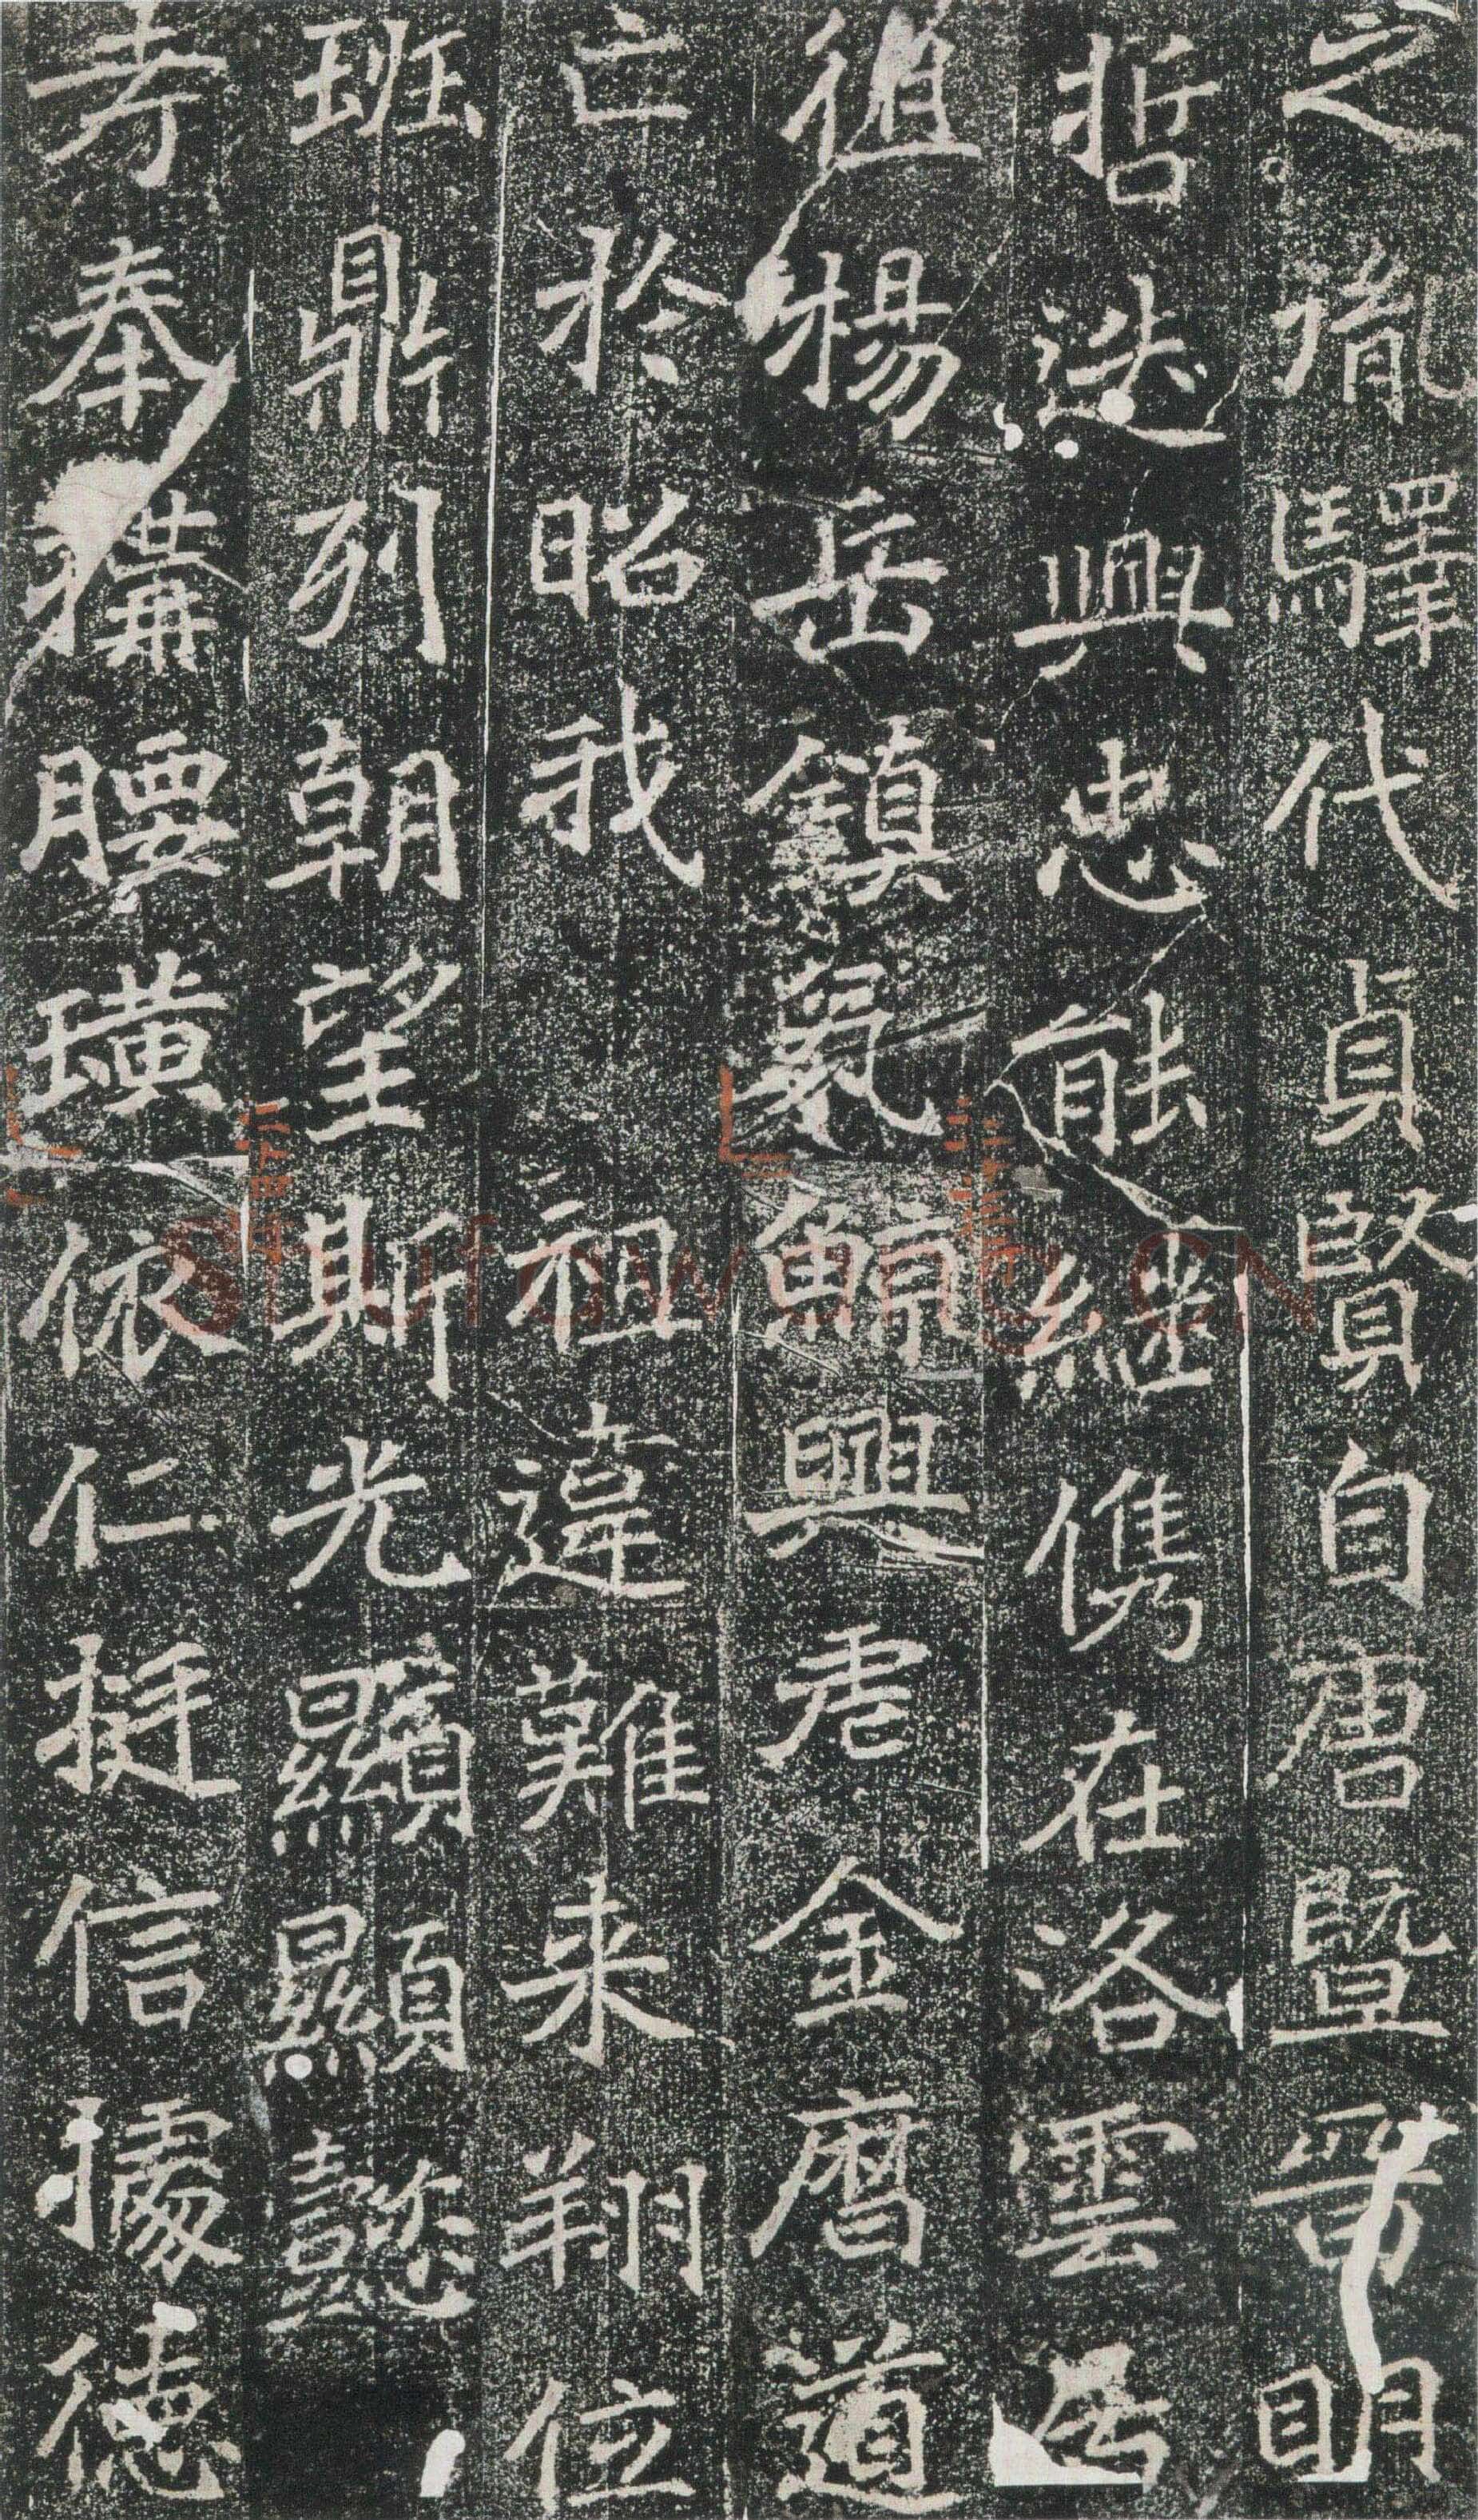 之胤驛代貞賢自唐暨晉明
哲迭興忠能継儁在洛雲
徂楊岳鎮鯨興虐金曆道
亡於昭我 祖違難来翔位
班鼎列朝望斯光顯顯懿
考奉搆腰璜依仁挺信據徳
Shufawang.CN